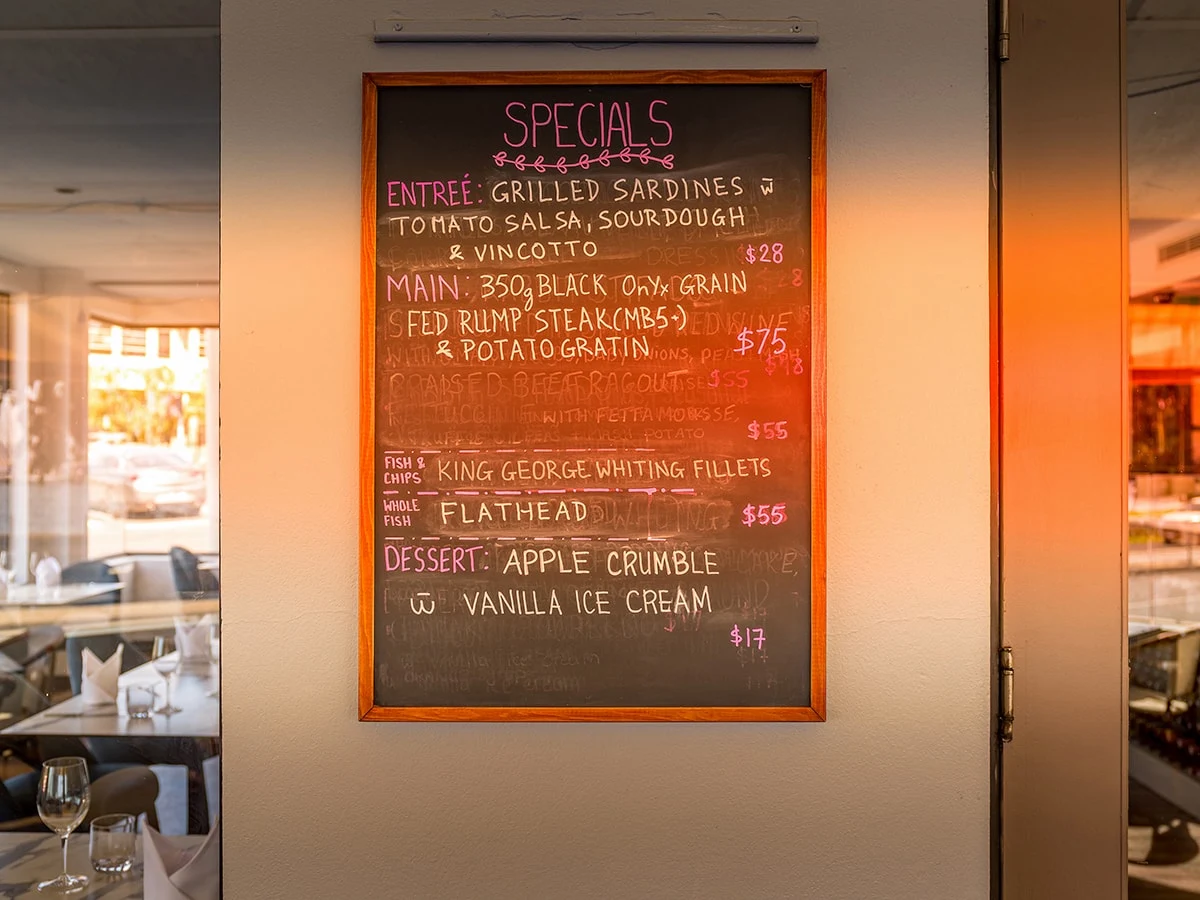 SPECIALS
ENTREÉ: GRILLED SARDINES w̄
TOMATO SALSA, SOURDOUGH
& VINCOTTO
$28
MAIN: 350g BLACK ONYX GRAIN
FED RUMP STEAK (MB5+)
& POTATO GRATIN $75
$55
WITH FETTA MOUSSE,
POTATO $55
FISH & CHIPS KING GEORGE WHITING FILLETS
WHOLE FISH FLATHEAD $55
DESSERT: APPLE CRUMBLE
w̄ VANILLA ICE CREAM
$17